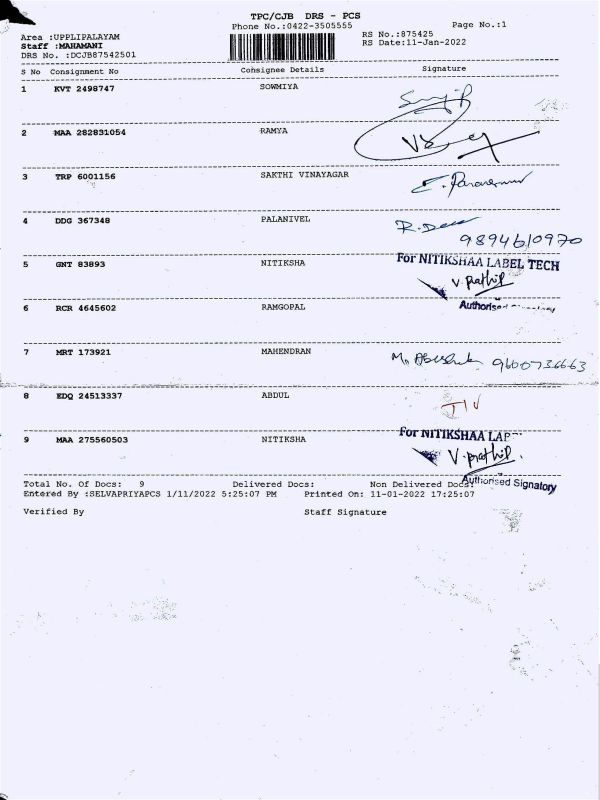 TPC/CJB DRS - PCS
Phone No.:0422-3505555
Page No.:1
Area :UPPLIPALAYAM
RS No.:875425
Staff :MAHAMANI
RS Date:11-Jan-2022
DRS No. :DCJB87542501
S No Consignment No Cohsignee Details Signature
1 KVT 2498747 SOWMIYA
2 MAA 282831054 RAMYA
3 TRP 6001156 SAKTHI VINAYAGAR
4 DDG 367348 PALANIVEL
9894610970
5 GNT 83893 NITIKSHA For NITIKSHAA LABEL TECH
V. Prathip
Authorised
6 RCR 4645602 RAMGOPAL
7 MRT 173921 MAHENDRAN 9600736663
8 EDQ 24513337 ABDUL
For NITIKSHAA LAB
9 MAA 275560503 NITIKSHA V. Prathip.
Authorised Signatory
Total No. Of Docs: 9 Delivered Docs: Non Delivered Docs:
Entered By :SELVAPRIYAPCS 1/11/2022 5:25:07 PM Printed On: 11-01-2022 17:25:07
Verified By Staff Signature